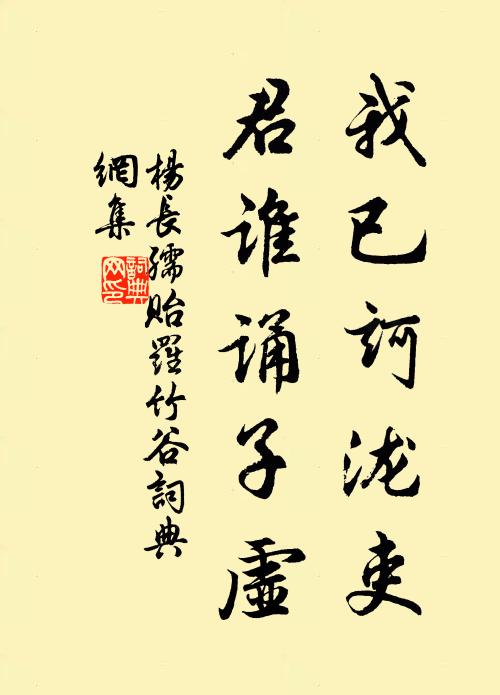 我已訶泷吏
君谁诵子虛
楊長孺貽羅竹谷詞典
網集
詞典
网印